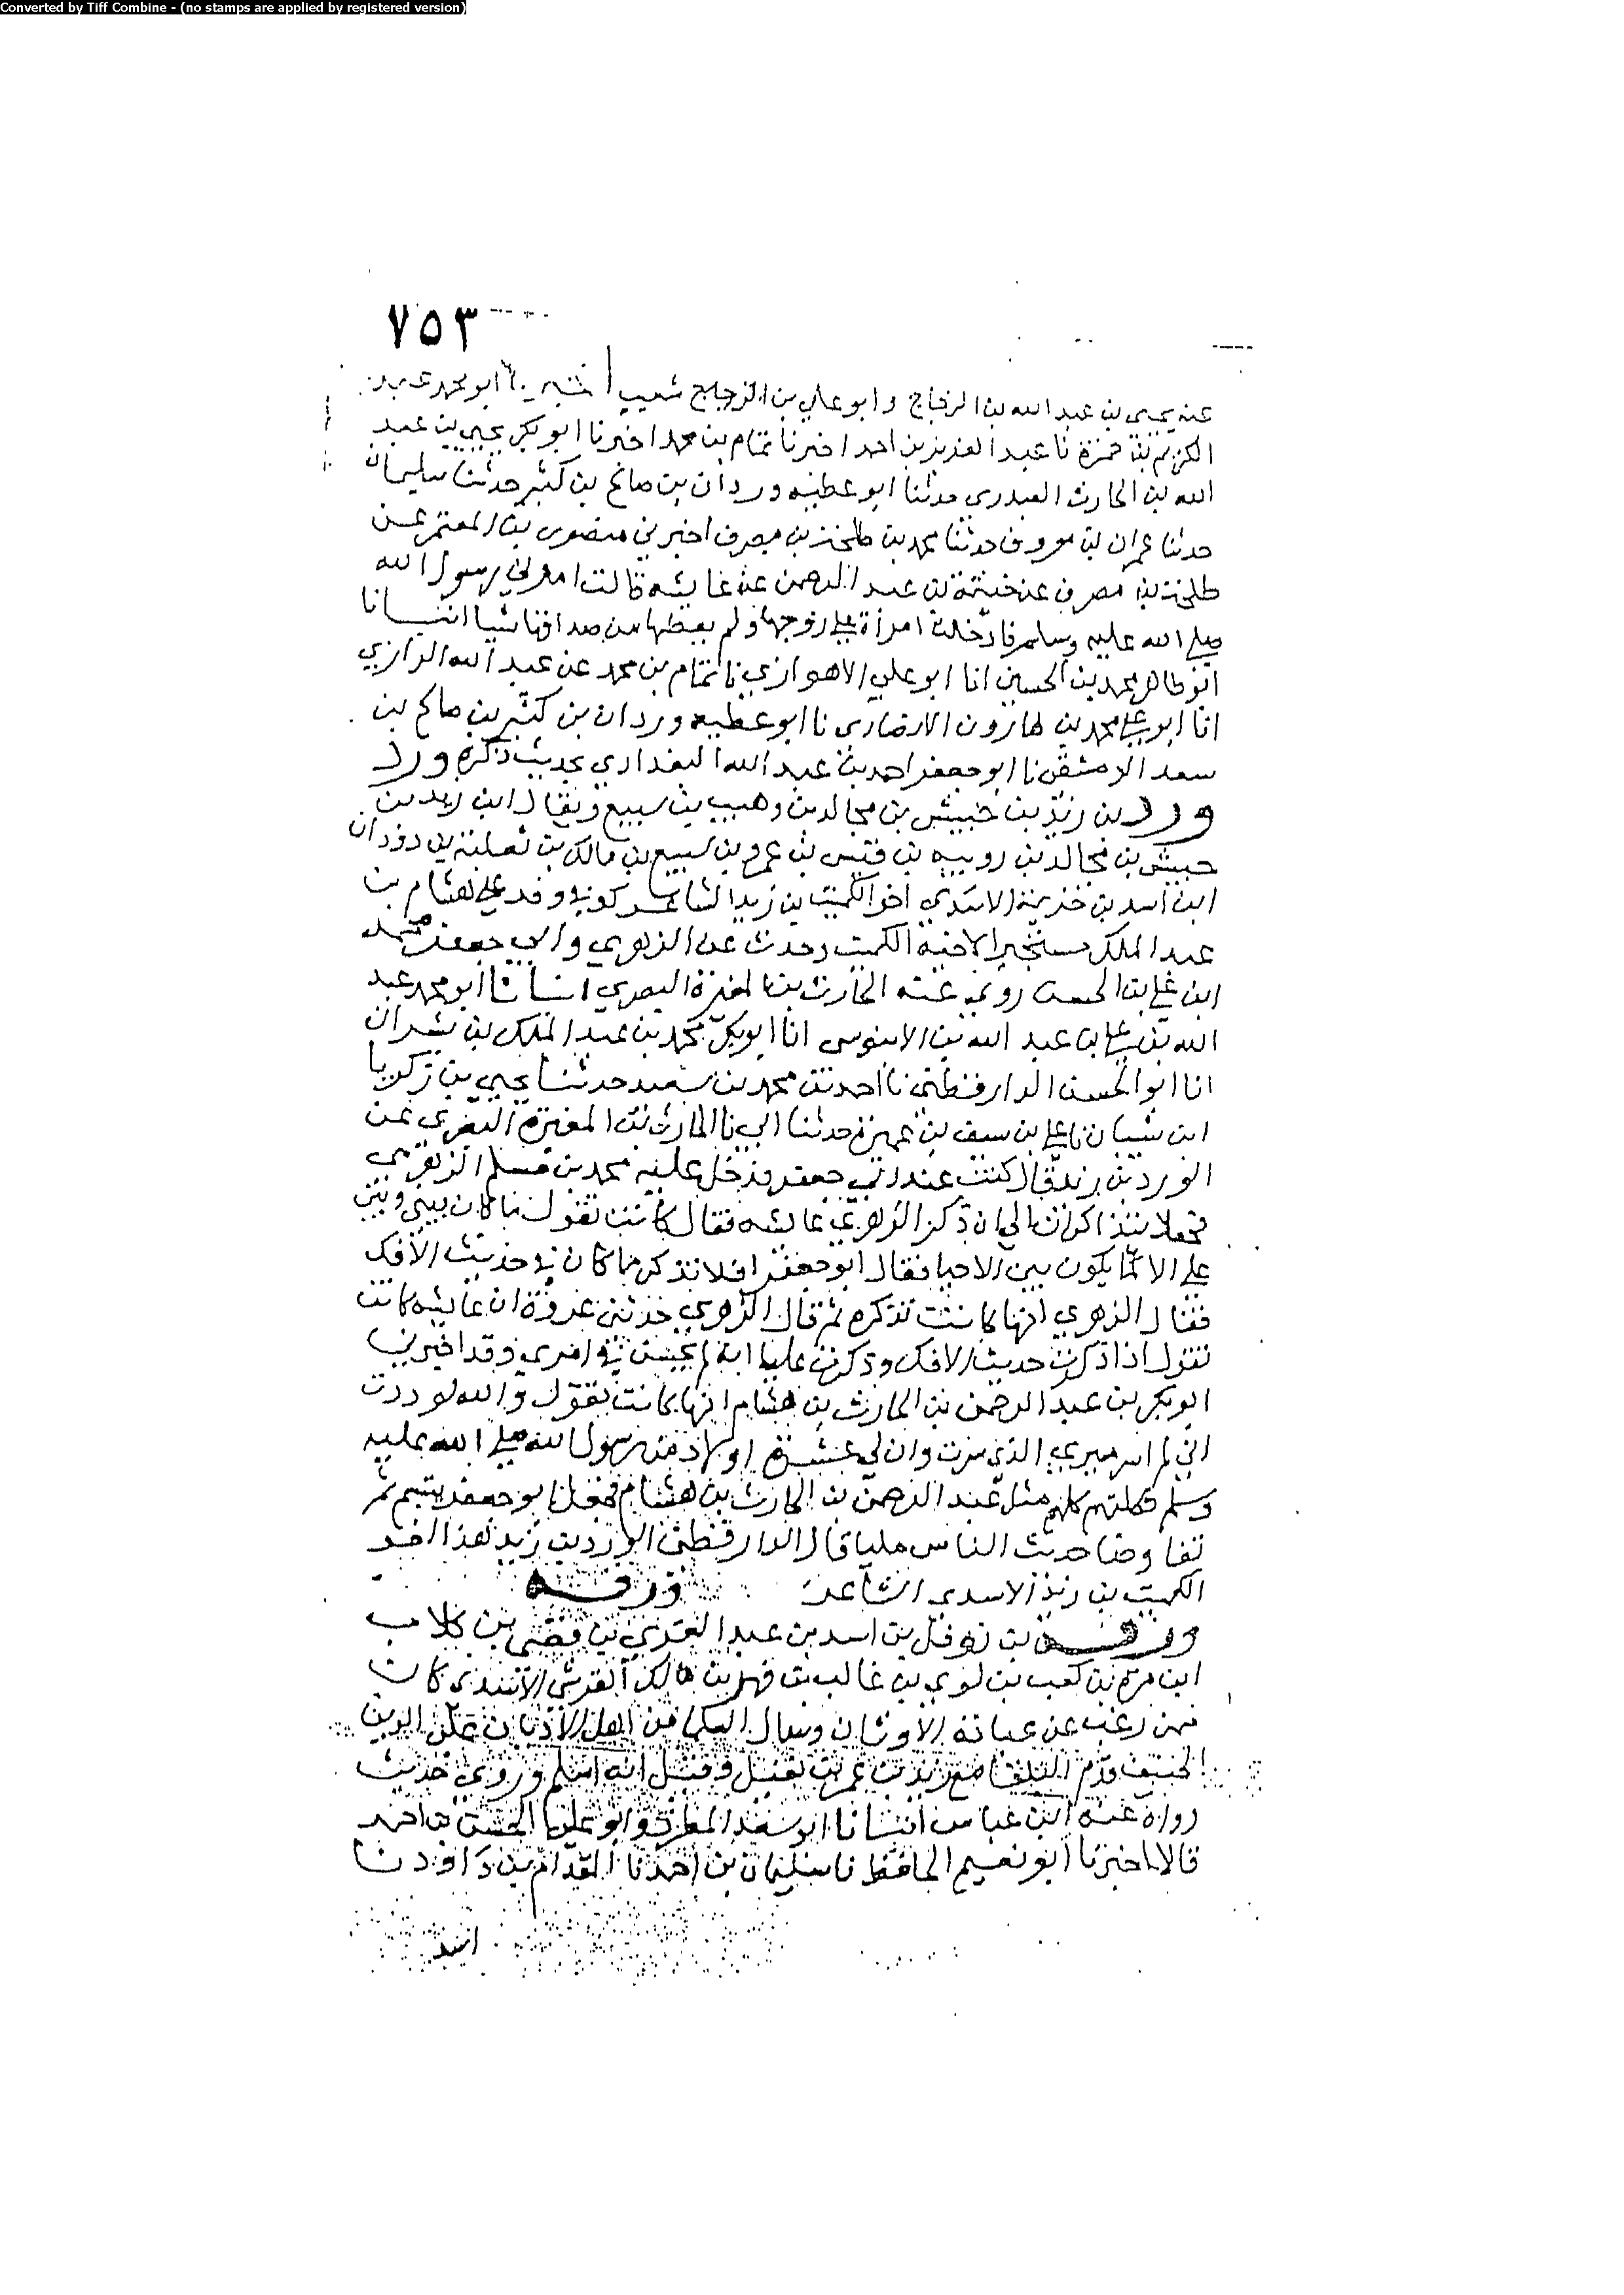 Converted by Tiff Combine - (no stamps are applied by registered version)
٧٥٣
عنه يحيى بن عبد الله بن الزجاج وابو علي بن الزجاج شعيب اخبرنا ابو محمد عبد
الكريم بن حمزة نا عبد العزيز بن احمد اخبرنا تمام بن محمد اخبرنا ابو بكر يحيى بن عبد
الله بن الحارث العبدري حدثنا ابو عطيه وردان بن صالح بن كثير حدثنا سليمان
حدثنا عمران بن معروف حدثنا محمد بن طلحة بن مصرف اخبرني منصور بن المعتمر عن
طلحة بن مصرف عن خيثمة بن عبد الرحمن عن عايشه قالت امرني رسول الله
صلى الله عليه وسلم فادخلت امراة على زوجها ولم يعطها من صداقها شيا انبانا
ابو طاهر محمد بن الحسين انا ابو علي الاهوازي نا تمام بن محمد عن عبد الله الرازي
انا ابو علي محمد بن هارون الانصاري نا ابو عطيه وردان بن كثير بن صالح بن
سعد الدمشقي نا ابو جعفر احمد بن عبد الله البغدادي بحديث ذكره ورد
ورد بن زيد بن حبيش بن مجالد بن وهيب بن سبيع ويقال ابن زيد بن
حبيش بن مجالد بن رويبه بن قيس بن عمرو بن سبيع بن مالك بن ثعلبة بن دودان
ابن اسد بن خزيمة الاسدي اخو الكميت بن زيد الشاعر كوفي وفد على هشام بن
عبد الملك مستجيرا لاخيه الكميت وحدث عن الزهري وابي جعفر محمد
ابن علي بن الحسين روى عنه الحارث بن المغيرة البصري انبانا ابو محمد عبد
الله بن علي بن عبد الله بن الابنوسي انا ابو بكر محمد بن عبد الملك بن بشران
انا ابو الحسن الدارقطني نا احمد بن محمد بن سعيد حدثنا يحيى بن زكريا
ابن شيبان نا علي بن سيف بن عميرة حدثنا ابي نا الحارث بن المغيرة البصري عن
الورد بن زيد قال كنت عند ابي جعفر ودخل عليه محمد بن مسلم الزهري
فجعلا يتذاكران الى ان ذكر الزهري عايشه فقال كانت تقول ما كان بيني وبين
علي الا ما يكون بين الاحيا فقال ابو جعفر افلا تذكر ما كان في حديث الافك
فقال الزهري انها كانت تذكره ثم قال الزهري حدثني عروة ان عايشه كانت
تقول اذا ذكرت حديث الافك وذكرت عليا انه لم يحسن في امري وقد اخبرني
ابو بكر بن عبد الرحمن بن الحارث بن هشام انها كانت تقول والله لوددت
اني لم اسر مسيري الذي سرت وان لي عشرة اولاد من رسول الله صلى الله عليه
وسلم ثكلتهم كلهم مثل عبد الرحمن بن الحارث بن هشام فجعل ابو جعفر يتبسم ثم
تفاوضا حديث الناس مليا قال الدارقطني الورد بن زيد هذا اخو
الكميت بن زيد الاسدي الشاعر ورقه
ورقه بن نوفل بن اسد بن عبد العزى بن قصي بن كلاب
ابن مرة بن كعب بن لوي بن غالب بن فهر بن مالك القرشي الاسدي كان
ممن رغب عن عبادة الاوثان وسال العلما من اهل الاديان عن الدين
الحنيف وقدم البلقا مع زيد بن عمرو بن نفيل وقيل انه اسلم وروي حديث
رواه عنه ابن عباس انبانا ابو سعد المطرز وابو علي الحسن بن احمد
قالا اخبرنا ابو نعيم الحافظ نا سليمان بن احمد نا المقدام بن داود نا
اسد